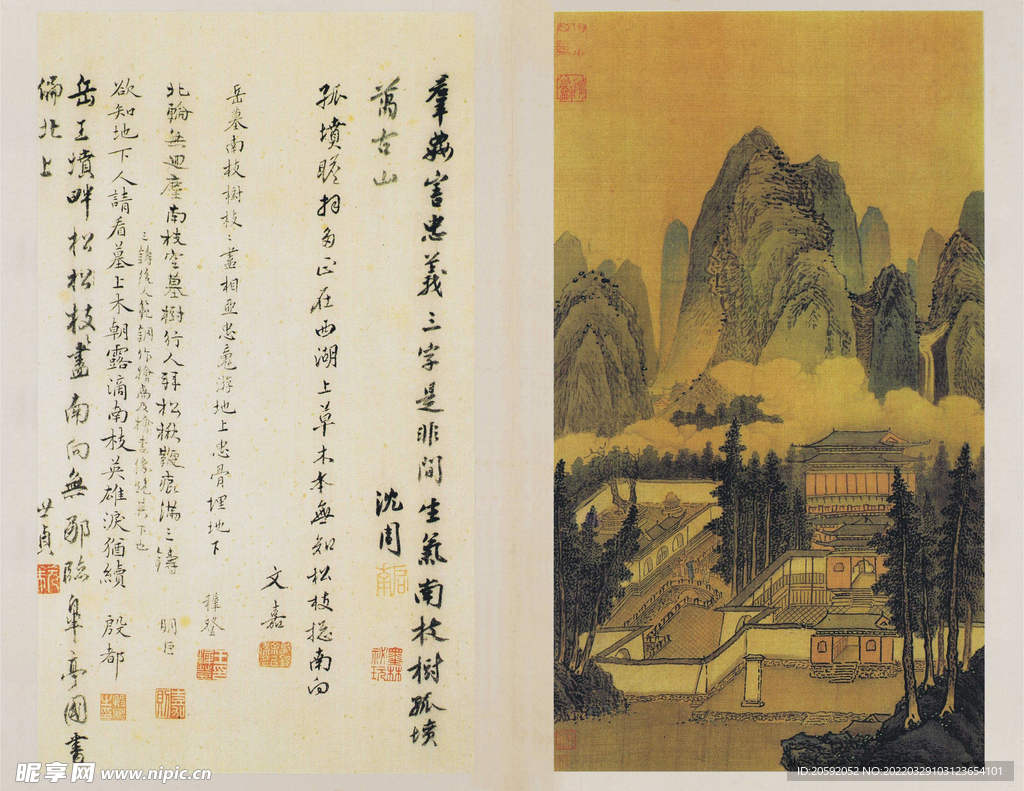 羣
害忠義三字是非間生氣南枝樹孤墳
萬古山
沈周
孤墳瞻拜多正在西湖上草木本無知松枝總南向
文嘉
岳墓南枝樹枝枝盡相亞忠魂游地上忠骨埋地下
穉登
北輪無迴塵南枝空墓樹行人拜松楸 痕滿三鑄
明臣
三鑄 人範銅作 為及檜 像 其下也
欲知地下人請看墓上木朝露滴南枝英雄淚猶續
殷都
岳王墳畔松松枝盡南向無那臨皋亭國書
偏北上
世貞
昵享网 www.nipic.cn
ID:20592052 NO:20220329103123654101